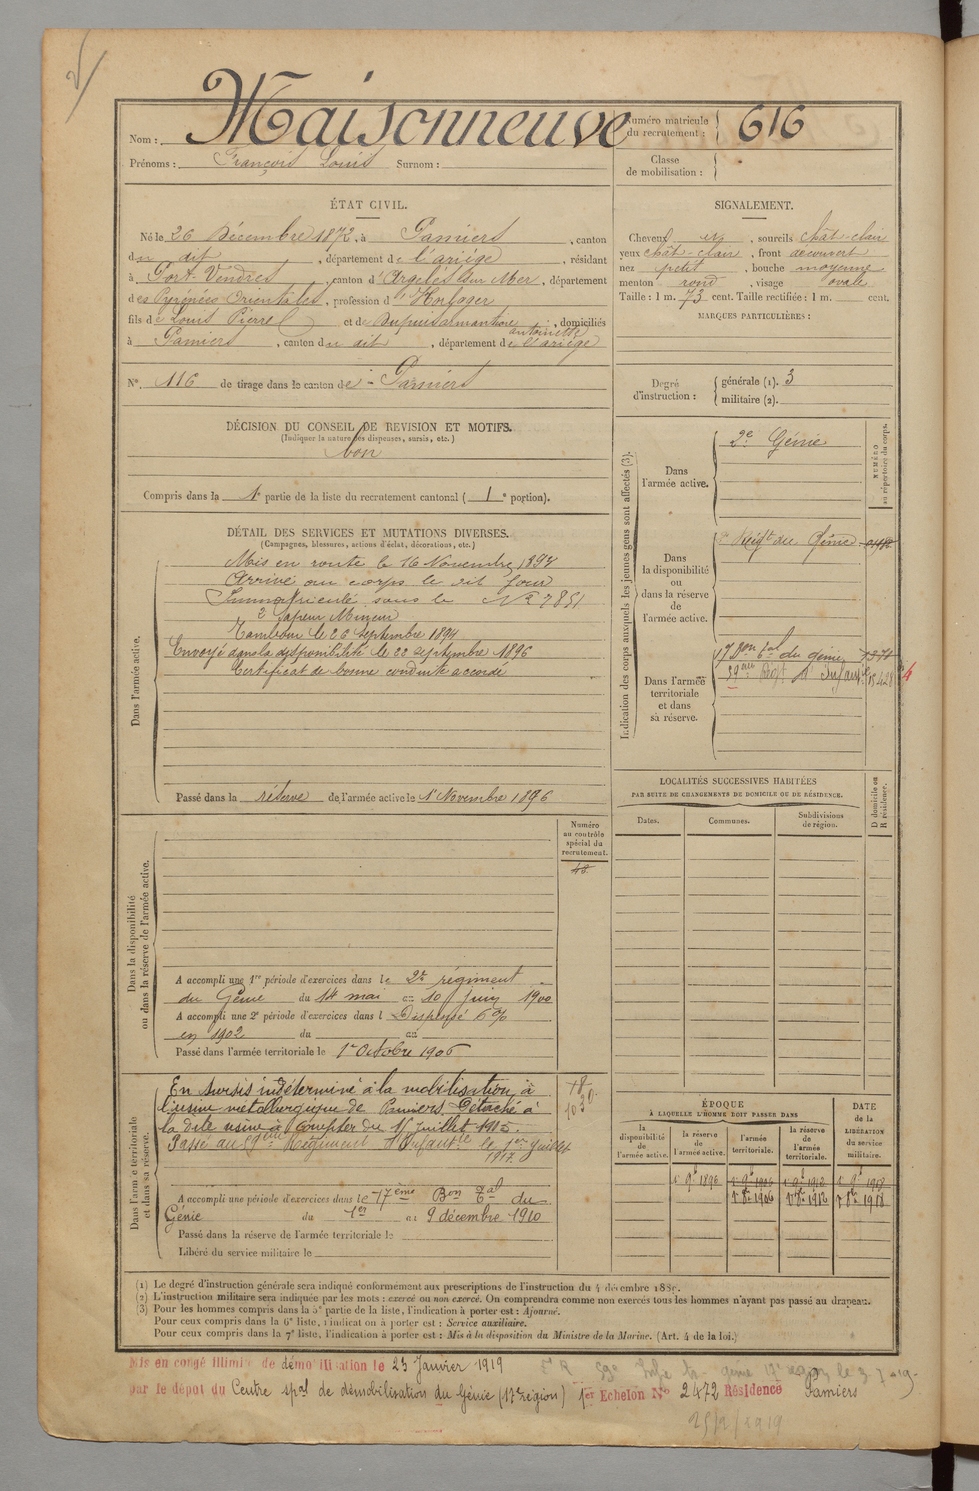 Nom : Maisonneuve
Prénoms : François Louis Surnom :
Numéro matricule du recrutement : 616
Classe de mobilisation :
ÉTAT CIVIL.
Né le 26 Décembre 1872, à Pamiers, canton
du dit, département de l'ariège, résidant
à Port-Vendres, canton d'Argelès sur Mer, département
des Pyrénées Orientales, profession d'Horloger
fils de Louis Pierre et de Dupuis armanthine antoinette, domiciliés
à Pamiers, canton du dit, département de l'ariège
N° 116 de tirage dans le canton de Pamiers
SIGNALEMENT.
Cheveux, sourcils chât-clair
yeux chât-clair, front découvert
nez petit, bouche moyenne
menton rond, visage ovale
Taille : 1 m. 73 cent. Taille rectifiée : 1 m. cent.
MARQUES PARTICULIÈRES :
Degré d'instruction :
générale (1). 3
militaire (2).
DÉCISION DU CONSEIL DE REVISION ET MOTIFS.
(Indiquer la nature des dispenses, sursis, etc.)
bon
Compris dans la 1e partie de la liste du recrutement cantonal ( 1e portion).
DÉTAIL DES SERVICES ET MUTATIONS DIVERSES.
(Campagnes, blessures, actions d'éclat, décorations, etc.)
Dans l'armée active.
Mis en route le 16 Novembre 1893
Arrivé au corps le dit jour
Immatriculé sous le N° 7851
2e Sapeur Mineur
Tambour le 26 septembre 1894
Envoyé dans la disponibilité le 22 septembre 1896
Certificat de bonne conduite accordé
Passé dans la réserve de l'armée active le 1r Novembre 1896
Indication des corps auxquels les jeunes gens sont affectés (3).
NUMÉRO au répertoire du corps.
Dans l'armée active.
2e Génie
Dans la disponibilité ou dans la réserve de l'armée active.
Régt du Génie
Dans l'armée territoriale et dans sa réserve.
17 Bon Tal du génie 1370
59ème Régt d'Infanterie
LOCALITÉS SUCCESSIVES HABITÉES
PAR SUITE DE CHANGEMENTS DE DOMICILE OU DE RÉSIDENCE.
Dates. Communes. Subdivisions de région. D domicile ou R résidence.
Numéro au contrôle spécial du recrutement.
48
Dans la disponibilité ou dans la réserve de l'armée active.
A accompli une 1re période d'exercices dans le 2e régiment
du Génie du 14 mai au 10 juin 1900
A accompli une 2e période d'exercices dans l Dispensé 6%
en 1902 du au
Passé dans l'armée territoriale le 1r Octobre 1906
Dans l'armée territoriale et dans sa réserve.
En sursis indéterminé à la mobilisation, à
l'usine métallurgique de Pamiers. Détaché à
la dite usine à compter du 1r Juillet 1915.
Passé au 59ème Régiment d'Infanterie le 1er Juillet
1917.
A accompli une période d'exercices dans le 17ème Bon Tal du
Génie du 1er au 9 décembre 1910
Passé dans la réserve de l'armée territoriale le
Libéré du service militaire le
ÉPOQUE
À LAQUELLE L'HOMME DOIT PASSER DANS
la disponibilité de l'armée active. la réserve de l'armée active. l'armée territoriale. la réserve de l'armée territoriale.
DATE de la LIBÉRATION du service militaire.
1r 9bre 1896 1r 9bre 1906 1r 9bre 1912 1r 9bre 1918
1r 8bre 1906 1r 8bre 1912 1r 8bre 1918
(1) Le degré d'instruction générale sera indiqué conformément aux prescriptions de l'instruction du 4 décembre 1889.
(2) L'instruction militaire sera indiquée par les mots : exercé ou non exercé. On comprendra comme non exercés tous les hommes n'ayant pas passé au drapeau.
(3) Pour les hommes compris dans la 5e partie de la liste, l'indication à porter est : Ajourné.
Pour ceux compris dans la 6e liste, l'indication à porter est : Service auxiliaire.
Pour ceux compris dans la 7e liste, l'indication à porter est : Mis à la disposition du Ministre de la Marine. (Art. 4 de la loi.)
Mis en congé illimité de démobilisation le 23 Janvier 1919
par le dépot du Centre spal de démobilisation du Génie (17e région) 1er Echelon N° 2472 Résidence Pamiers